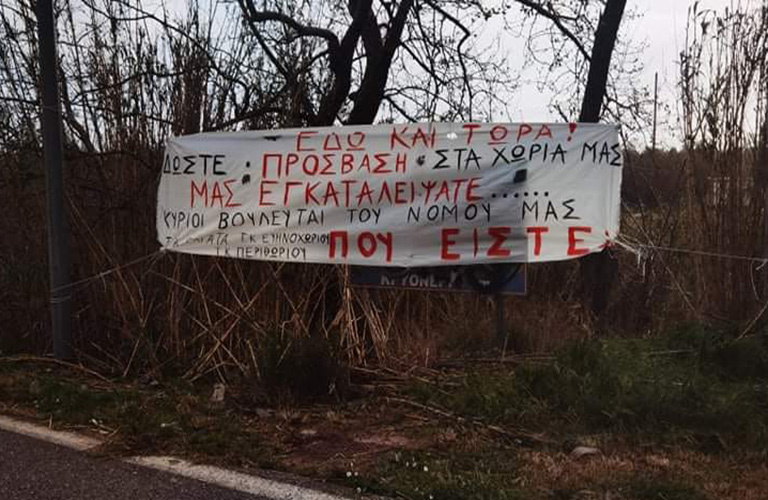 ΕΔΩ ΚΑΙ ΤΩΡΑ!
ΔΩΣΤΕ • ΠΡΟΣΒΑΣΗ • ΣΤΑ ΧΩΡΙΑ ΜΑΣ
ΜΑΣ ΕΓΚΑΤΑΛΕΙΨΑΤΕ......
ΚΥΡΙΟΙ ΒΟΥΛΕΥΤΑΙ ΤΟΥ ΝΟΜΟΥ ΜΑΣ
Τ.Κ ΕΥΗΝΟΧΩΡΙΟΥ ΠΟΥ ΕΙΣΤΕ
Τ.Κ ΠΕΡΙΘΩΡΙΟΥ